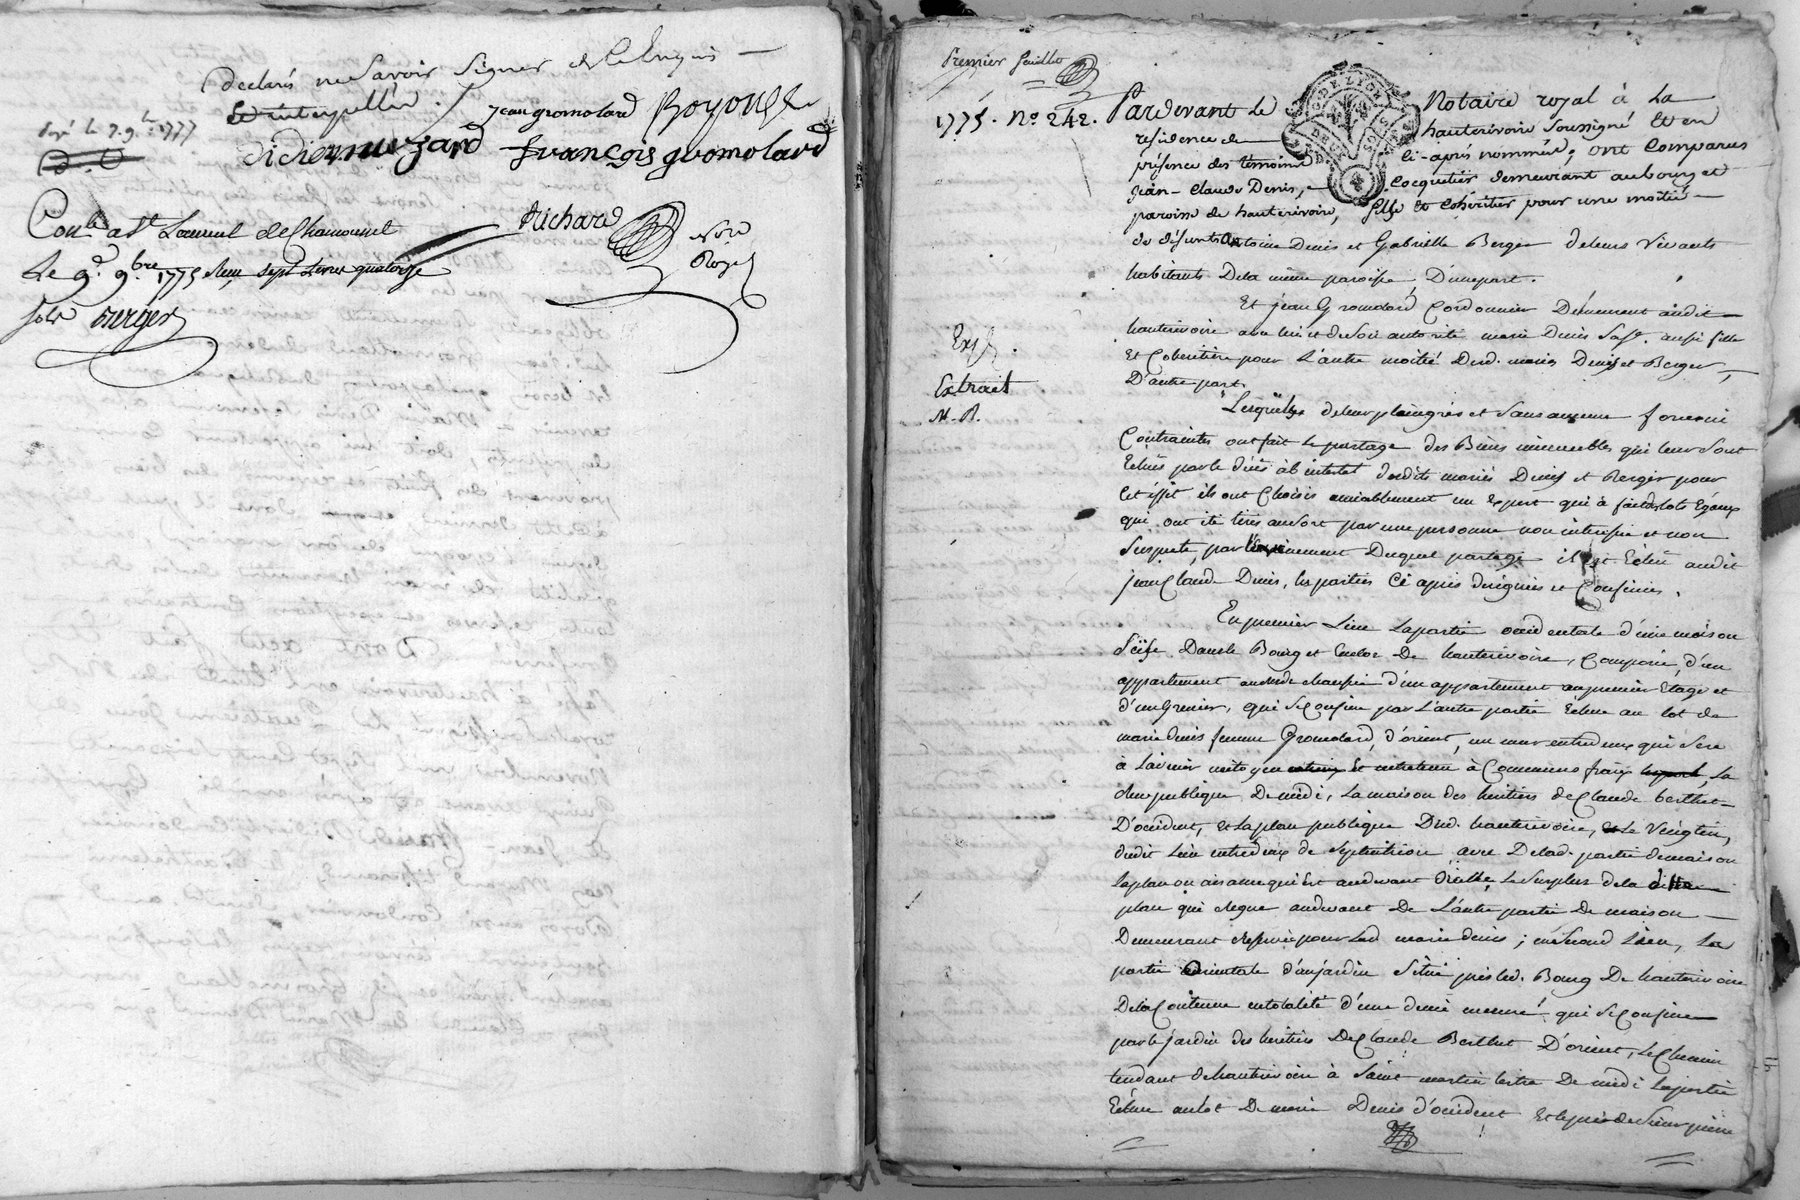 declarés ne Savoir Signer de Ce Enquis
Et interpellés
jean gromolard Boyoud
didier muzard françois gromolard
Con.lé a St Laurent de Chamousset
Le 9.e 9.bre 1775 Reçu sept Livres quatorze
sols Berger
Richard
No.re
Royal
Premier feuillet
1775. N.o 242. Pardevant Le Notaire royal à La
residence de hauterivoire Soussigné Et en
présence des témoins Ci-après nommés; ont Comparus
jean-Claude Denis, Cocquetier demeurant au bourg et
paroisse de hauterivoire, fils et Cohéritier pour une moitié
de défunts Antoine Denis et Gabrielle Berger de leurs Vivants
habitants De la même paroisse, D'une part.
Et jean Gromolard Cordonnier Demeurant audit
hauterivoire avec lui et de Son autorité marie Denis Sa fe. aussi fille
Et Coheritière pour L'autre moitié Desd. mariés Denis et Berger,
D'autre part
Exp.
Extrait
N. R.
Lesquelles de leur plein grés et Sans aucune force ni
Contraintes ont fait Le partage des Biens immeubles qui leur Sont
Echus par le décès ab intestat desdits mariés Denis et Berger pour
Cet éffet ils ont Choisis amiablement un Expert qui à fait des lots Egaux
qui ont été tirés au Sort par une personne non interessée et non
Suspecte, par L'evenement Duquel partage il Est Echu audit
jean Claude Denis, les parties Ci après designées et Confinées.
En premier Lieu La partie occidentale d'une maison
Scise Dans le Bourg et Enclos De hauterivoire, Composée, d'un
appartement au rés de chaussée d'un appartement au premier Etage et
d'un Grenier, qui Se Confine par L'autre partie Echue au lot de
marie denis femme Gromolard, d'orient, un mur entre deux qui Sera
à L'avenir mitoyen Et entretenu à Communs fraix La
rue publique De midi, La maison des heritiers de Claude berthet
D'occident, et La place publique Dud. hauterivoire, et Le Vingtin,
dudit Lieu entre deux de Septentrion, avec De lad. partie de maison
La place ou aisance qui Est au devant d'icelle, Le Surplus de la ditte
place qui regne au devant De L'autre partie De maison
Demeurant reservée pour Lad marie denis; en Second Lieu, La
partie orientale d'un jardin Situé près led. Bourg De hauterivoire
De la Contenue en totalité d'une demie mesure qui Se Confine
par le jardin des heritiers De Claude Berthet D'orient, Le Chemin
tendant de hauterivoire à Saint martin lestra De midi La partie
Echue au lot De marie Denis d'occident et Le pré de Sieur pierre